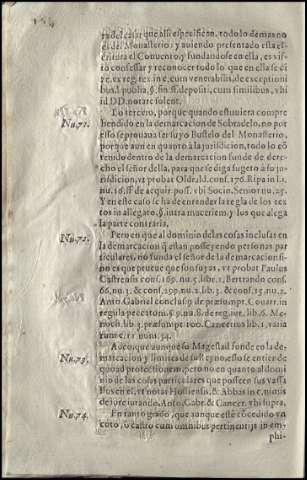 ra del casar que alli especifican, todo lo demas no
es del Monasterio, y auiendo presentado essa es-
critura el Conuento, y fundandose en ella, es vis-
to confessar y reconocer todo lo que en ella se di
ze, ex reg. tex. in c. cum venerabilis, de exceptioni
bus, l. publia, §. fin. ff. depositi, cum similibus, vbi
DD. notare solent.
Nu.71. Lo tercero, porque quando estuuiera compre
hendido en la demarcacion de Sobradelo, no por
esso se prouaua ser suyo Bustelo del Monasterio,
porque aun en quanto à la jurisdicion, todo lo cō
tenido dentro de la demarcacion funde de dere-
cho el señor della, para que se diga sugeto à su ju-
risdicion, vt probat Oldrad. conf. 176. Ripa in l. 1.
nu. 16. ff. de acquir. poss. vbi Socin. Senior nu. 25.
Y en este caso se ha de entender la regla de los tex
tos in allegato, §. intra maceriem, y los que alega
la parte contraria.
Nu.72. Pero en que al dominio de las cosas inclusas en
la demarcacion q̃ estan posseyendo personas par
ticulares, no funda el señor de la demarcacion si-
no es que prueue que son suyas, vt probat Paulus
Castrensis
66. nu. 3.
Anto. Gabriel
regula peccatum,
noch. lib. 3. præsumpt. 100. Cancerius lib. 1. varia
rum c. 11. num. 34.
Nu.73. A que aunque su Magestad funde en la de-
marcacion y limites de sus Reynos, esso se entiende
quoad protectionem, pero no en quanto al domi
nio de las cosas particulares que posseen sus vassa
llos
de iureiurando. Anto. Gabr. & Cancer. vbi supra.
Nu.74. En tanto grado, que aunque esté cōcedido vn
coto, o castro cum omnibus pertinentijs in em-
phi-